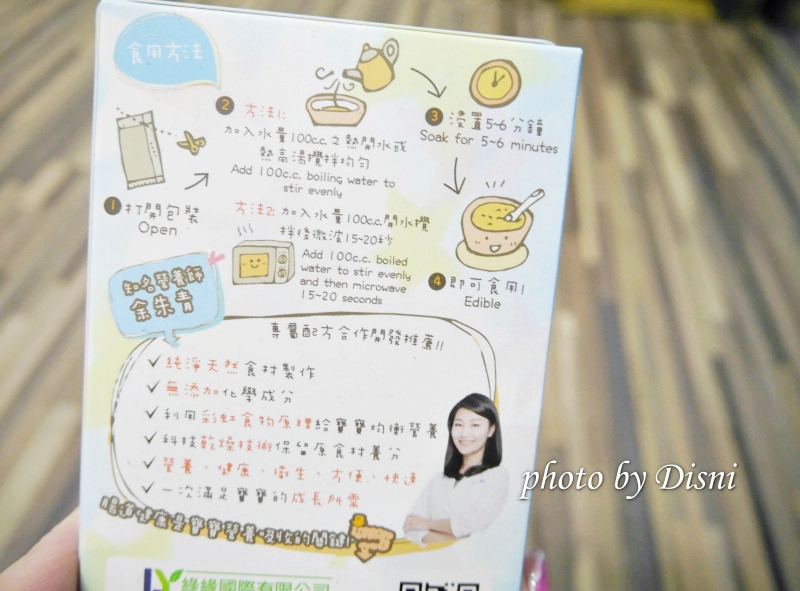 食用方法
❶ 打開包裝
Open
❷ 方法1:
加入水量100c.c.之熱開水或
熱高湯攪拌均勻
Add 100c.c. boiling water to
stir evenly
方法2: 加入水量100c.c.開水攪
拌後微波15~20秒
Add 100c.c. boiled
water to stir evenly
and then microwave
15~20 seconds
❸ 浸置5~6分鐘
Soak for 5~6 minutes
❹ 即可食用!
Edible
知名營養師
余朱青
專屬配方合作開發推薦!!
✓ 純淨天然食材製作
✓ 無添加化學成分
✓ 利用彩虹食物原理給寶寶均衡營養
✓ 科技乾燥技術保留原食材養分
✓ 營養、健康、衛生、方便、快速
✓ 一次滿足寶寶的成長所需
腸道健康是寶寶營養吸收的關鍵!
綠緣國際有限公司
photo by Disni